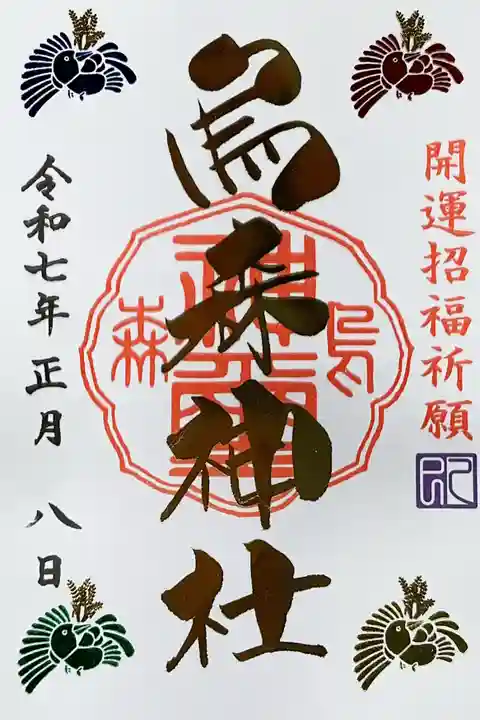 開運招福祈願
烏森神社
烏
森
令和七年 正月 八日